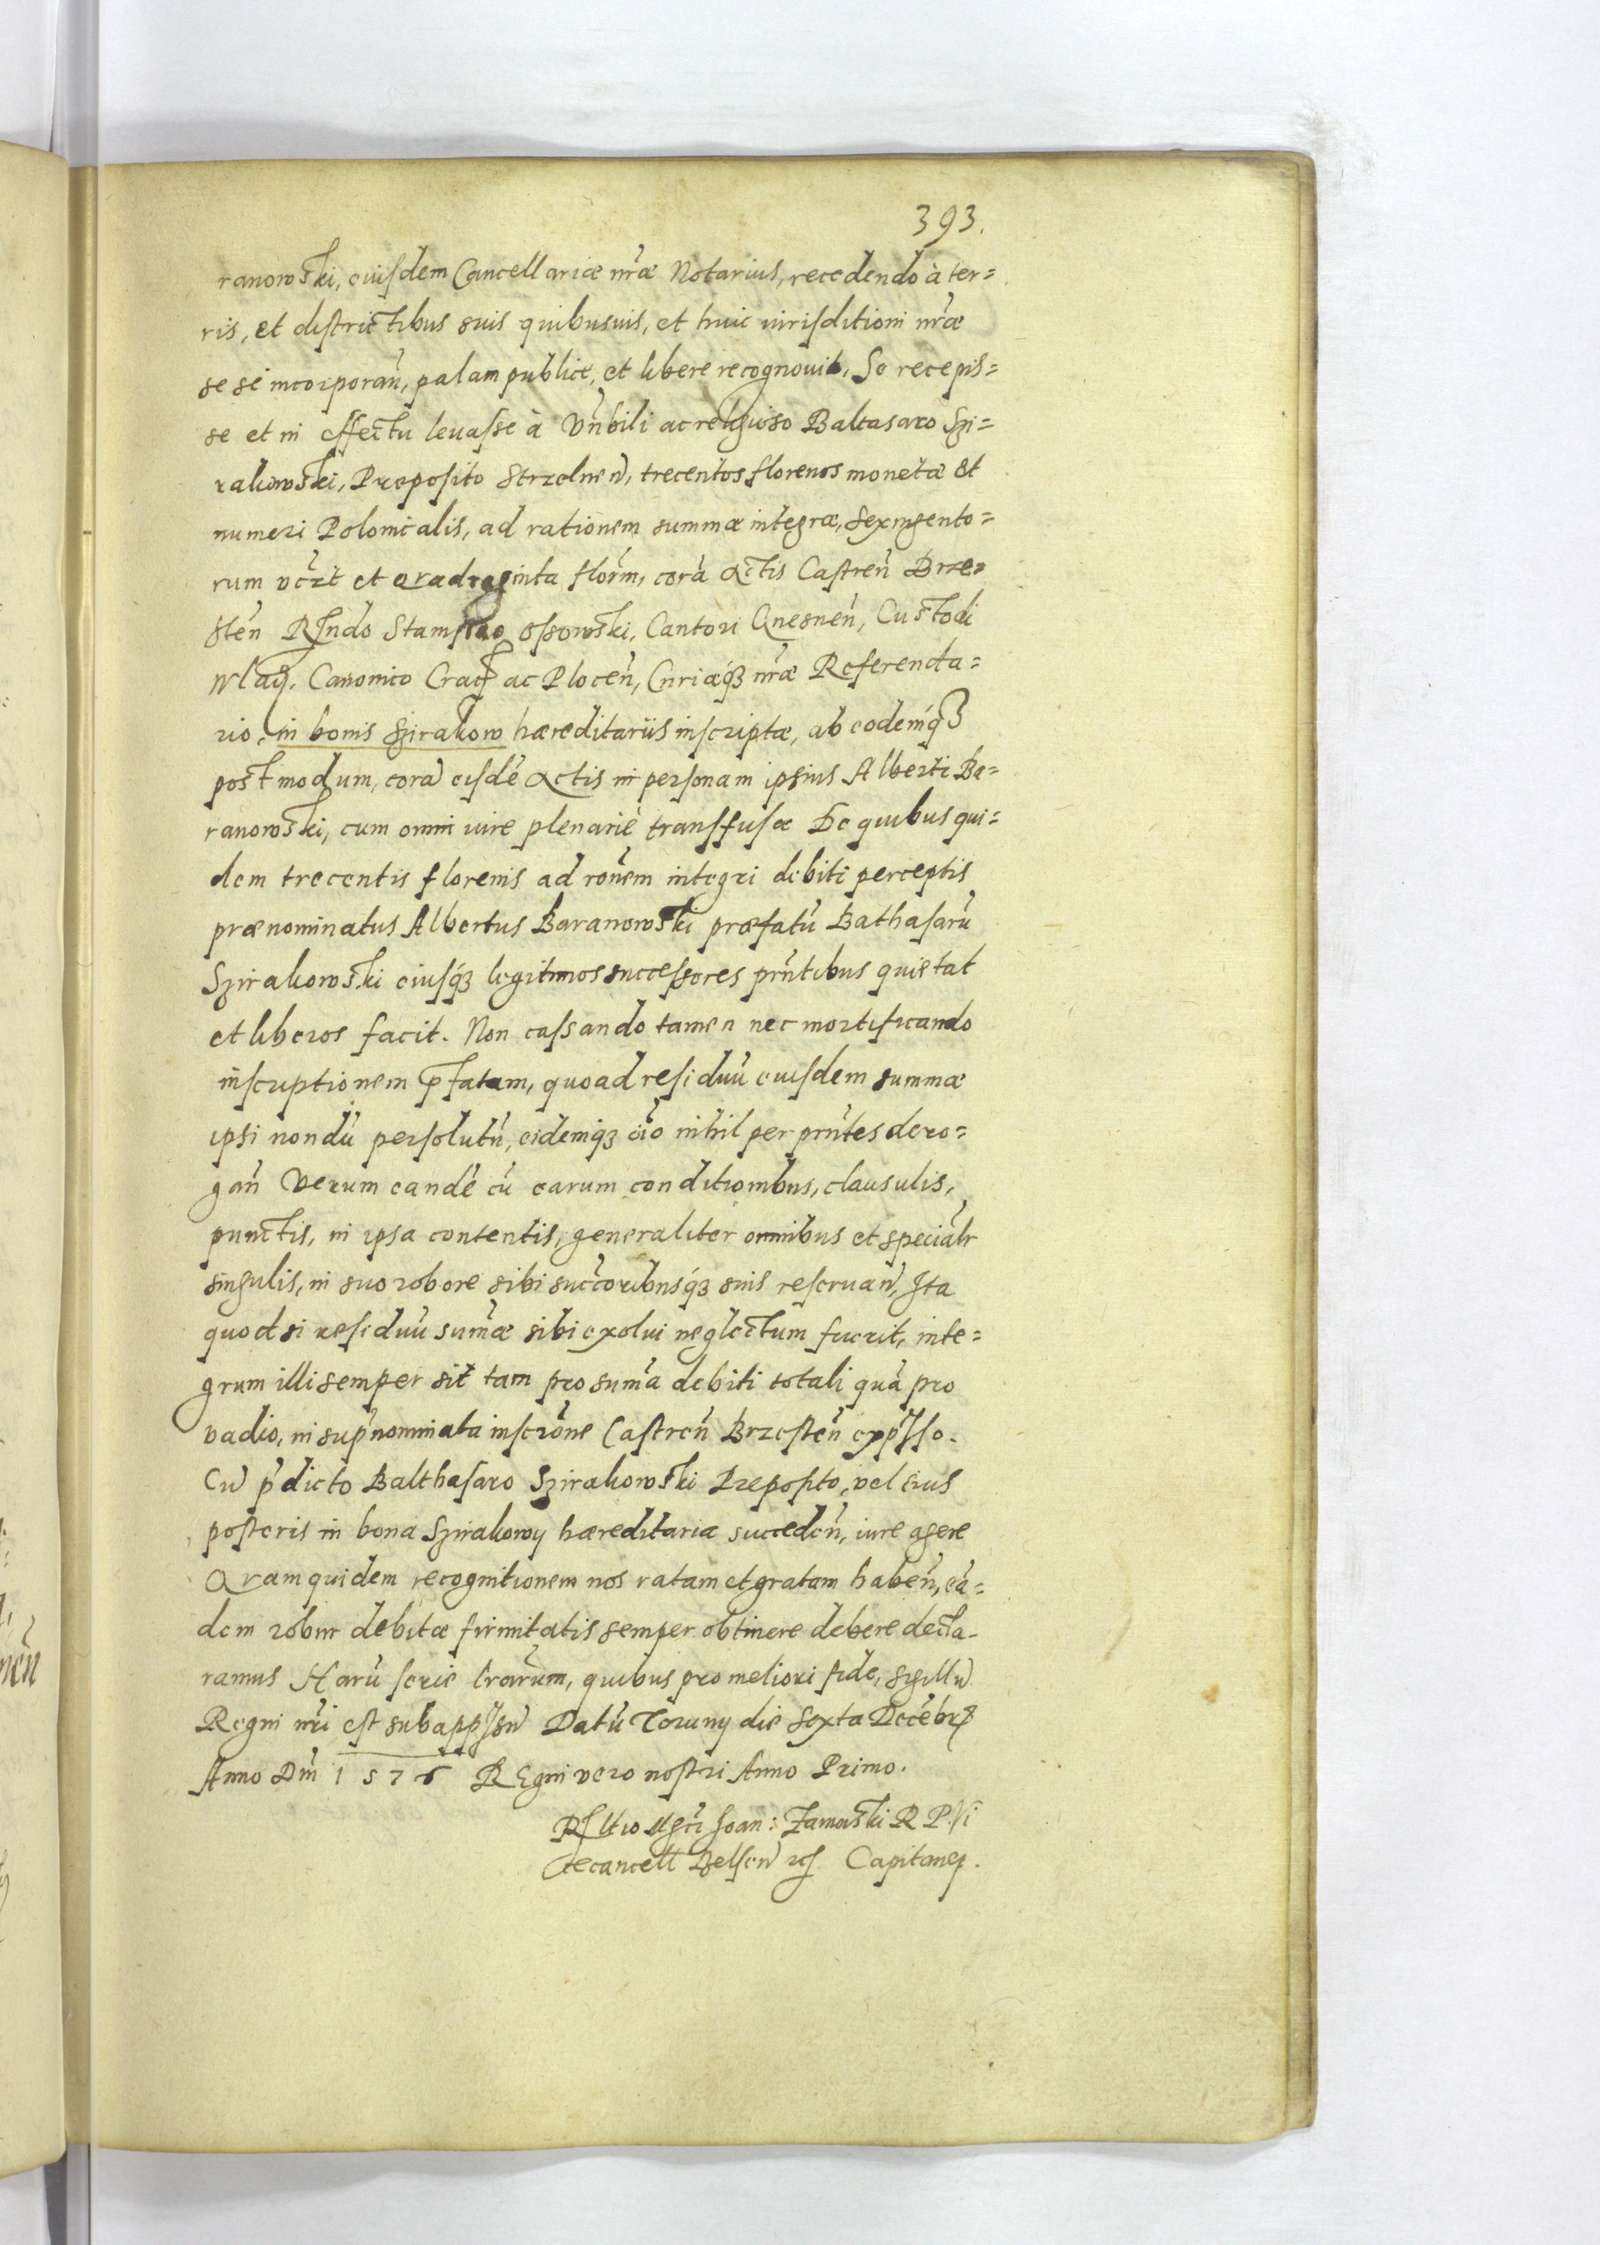 393.
ranowski, eiusdem Cancellariæ nr̃æ Notarius, recedendo à ter=
ris, et districtibus suis quibusuis, et huic iurisditioni nr̃æ
se se incorporan̄, palam publice, et libere recognouit, Se recepis=
se et in effectu leuasse à Vn̄bili ac religioso Baltasaro Szi=
rakowski, Preposito Strzelnen̄, trecentos florenos monetæ et
numeri Polonicalis, ad rationem summæ integræ, sexingento=
rum vc̃zt et Qvadraginta flor̃m, corā Actis Castren̄ Brze=
sten̄ R̃ndo Stanislao Ossowski, Cantori Gnesnen̄, Custodi
Wlad. Canonico Crac̃ ac Plocen̄, Curiæq́ nr̃æ Referenda=
rio, in bonis Szirakow hæreditariis inscriptæ, ab eodemq́
postmodum, corā eisdē Actis in personam ipsius Alberti Ba=
ranowski, cum omni iure plenariè transfusæ De quibus qui=
dem trecentis florenis ad ron̄em integri debiti perceptis
prænominatus Albertus Baranowski præfatū Bathasarū
Szirakowski eiusq́ legitimos successores prñtibus quietat
et liberos facit. Non cassando tamen nec mortificando
inscriptionem p̄fatam, quoad residuū eiusdem summæ
ipsi nondū persolutū, eidemq́ oīo nihil per prñtes dero=
gan̄ Verum eandē cū earum conditionibus, clausulis,
punctis, in ipsa contentis, generaliter omnibus et specialr̃
singulis, in suo robore sibi succ̃oribusq́ suis reseruan̄, Ita
quod si residuū sum̄æ sibi exolui neglectum fuerit, inte=
grum illi semper sit tam pro sum̄a debiti totali quā pro
vadio, in sup̄nominata inscr̄one Castren̄ Brzesten̄ exp̄sso.
Cū p̄dicto Balthasaro Szirakowski Preposito, vel eius
posteris in bona Szirakowy hæreditaria succeden̄, iure agere
Qvam quidem recognitionem nos ratam et gratam haben̄, eā=
dem robur debitæ firmitatis semper obtinere debere decla=
ramus Harū serie lr̃arum, quibus pro meliori fide, sigillū
Regni nr̃i est subapp̄sū Datū Toruny die Sexta Decēbr̃
Anno Dn̄i 1576 REgni vero nostri Anno Primo.
Rel̃tio Mgci Joan: Zamoiski R P. Vi
cecancell Belsen̄ zc̃ Capitanej.